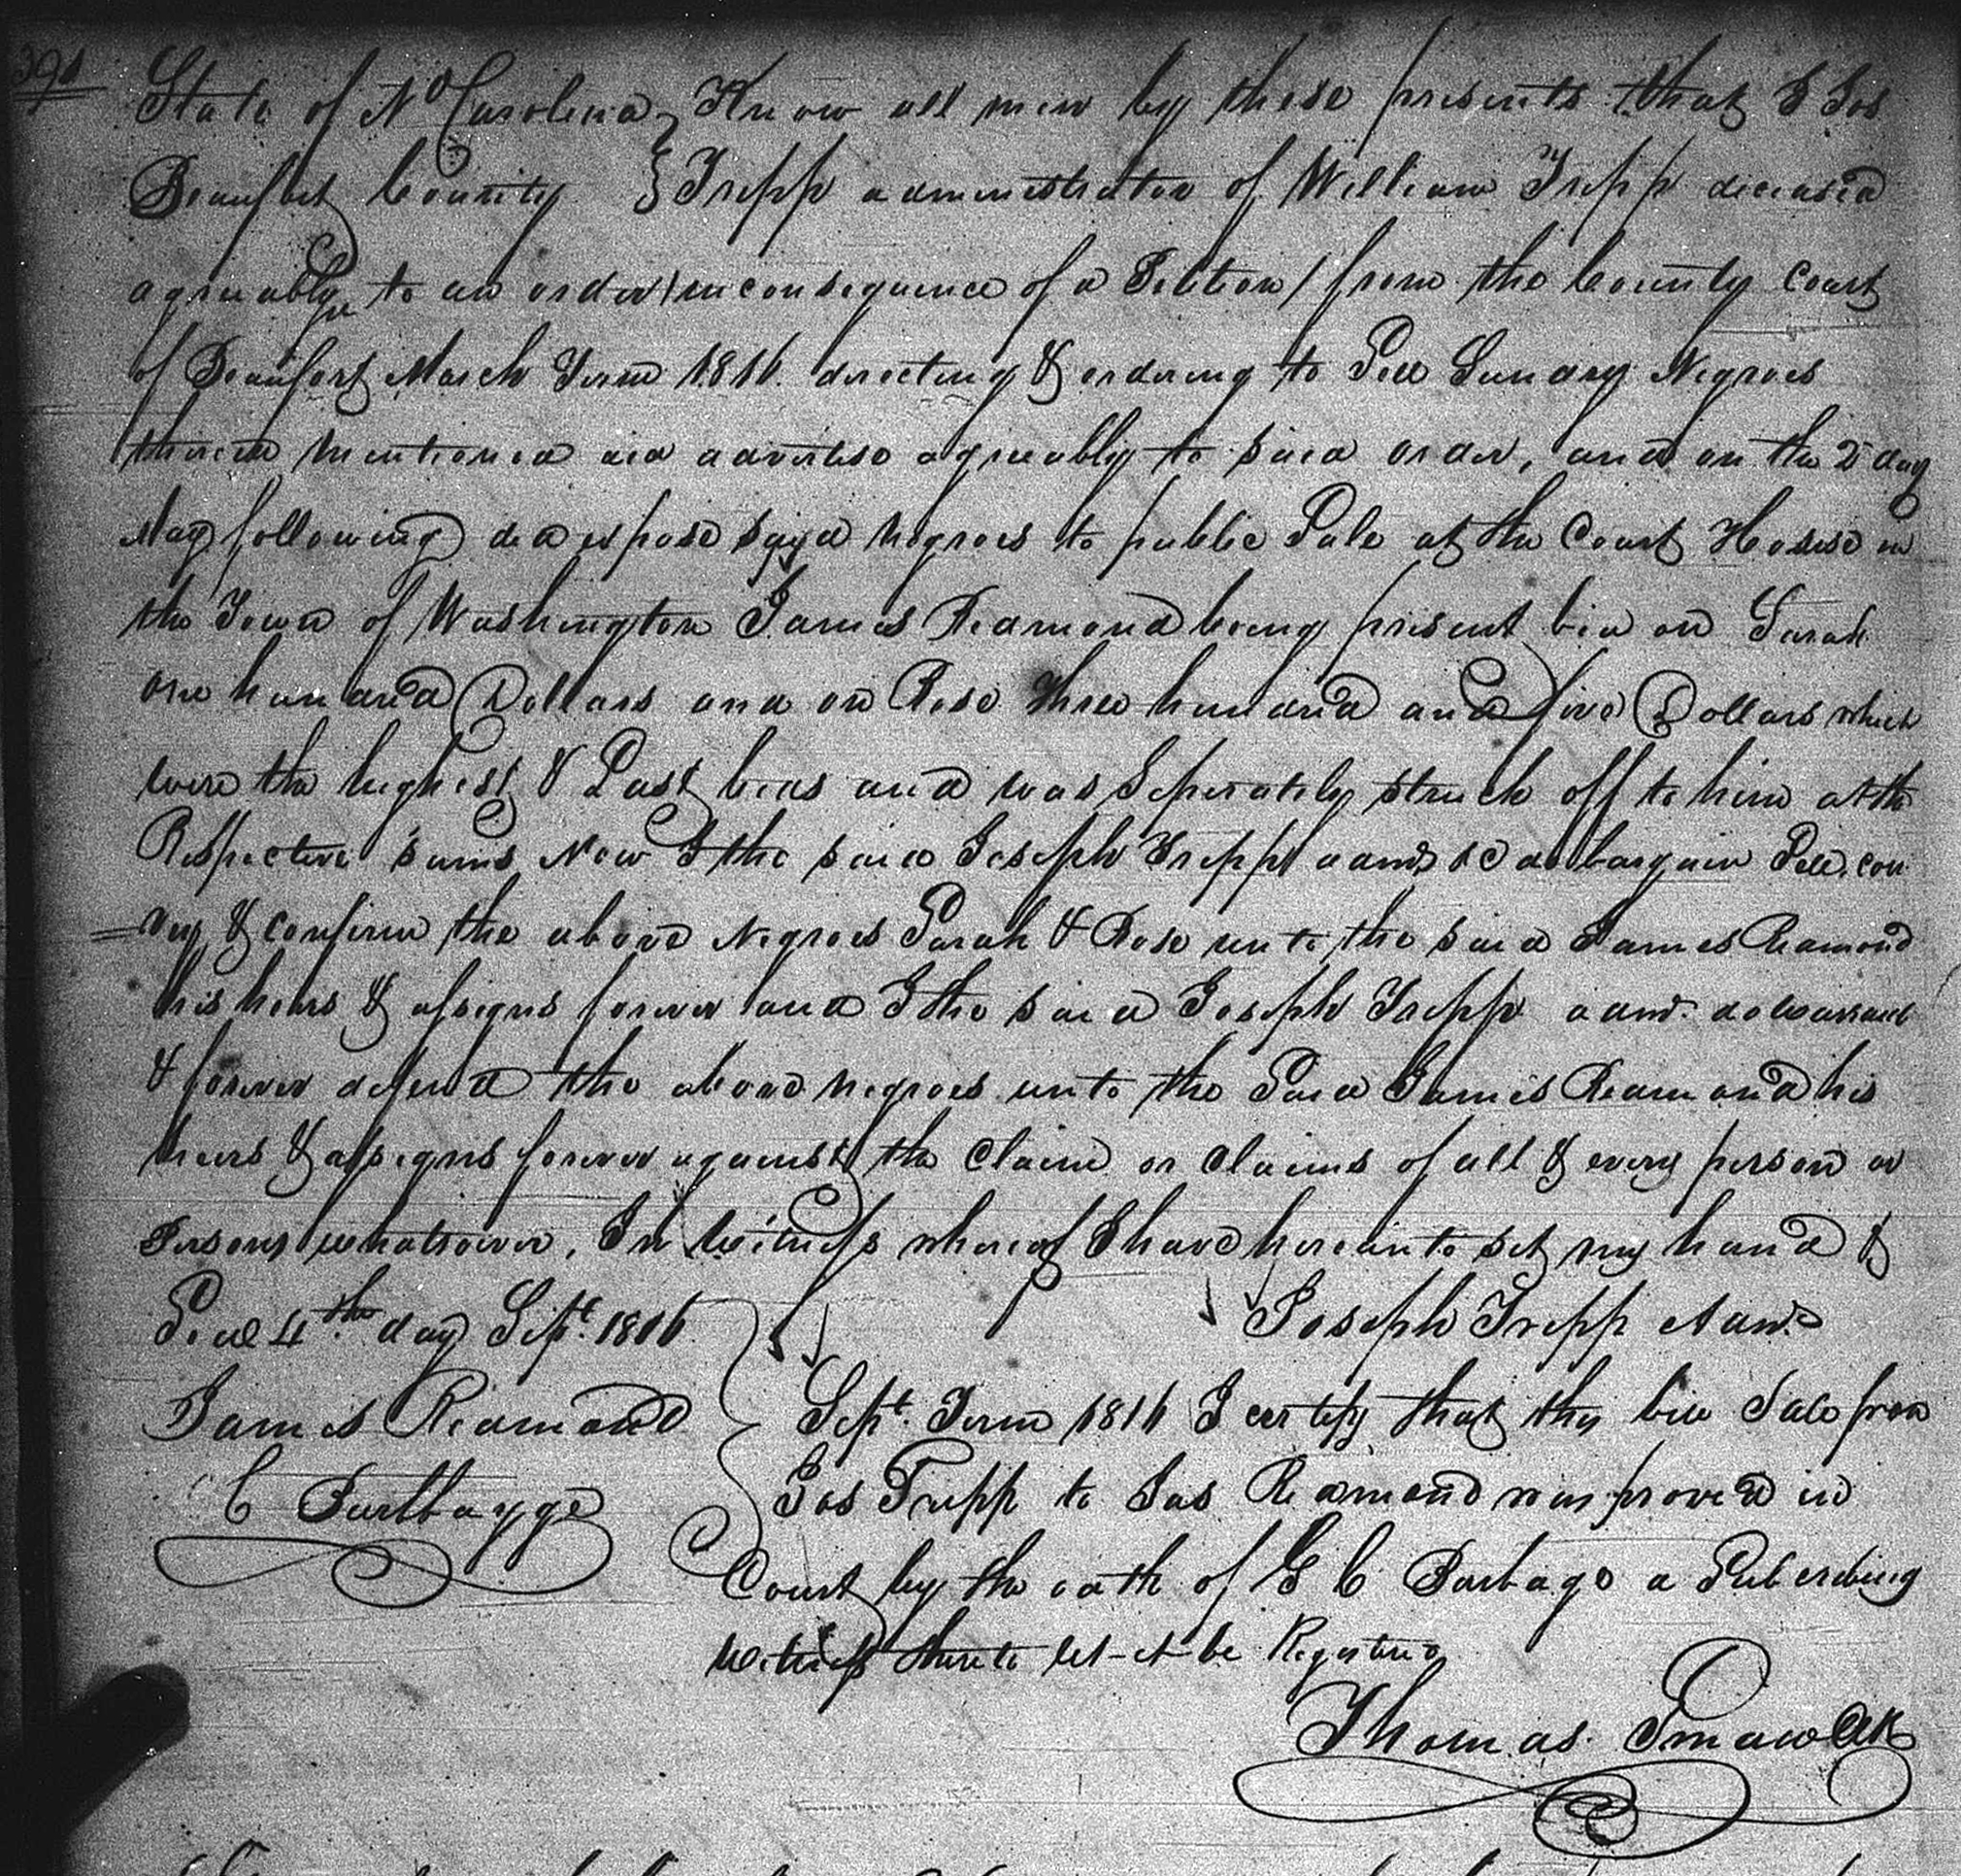 391
State of No Carolina } Know all men by these presents that I Jos
Beaufort County } Tripp administrator of William Tripp deceased
agreeably to an order (in consequence of a Petition) from the County Court
of Beaufort March Term 1816 directing & ordering to Sell Sundry Negroes
therein mentioned did advertise agreeably to said order, and on the 2d day
May following did expose said negroes to public Sale at the Court House in
the Town of Washington James Redmond being present bid on Sarah
one hundred Dollars and on Rose three hundred and five Dollars which
were the highest & Last bids and was Seperately struck off to him at the
Respective sums Now I the said Joseph Tripp admr &c do bargain Sell, con
vey & confirm the above Negroes Sarah & Rose unto the said James Redmond
his heirs & assigns forever and I the said Joseph Tripp admr. do warrant
& forever defend the above negroes unto the Said James Redmond his
heirs & assigns forever against the Claim or Claims of all & every person or
Persons whatsoever, In Witness whereof I have hereunto set my hand &
Seal 4th day Sept. 1816
Joseph Tripp Admr
James Redmond
C Burbayge
Sept. Term 1816 I certify that this bill Sale from
Jos Tripp to Jas Redmond was proved in
Court by the oath of G C Barbage a Subscribing
witness thereto let it be Registered
Thomas Smaw Clk